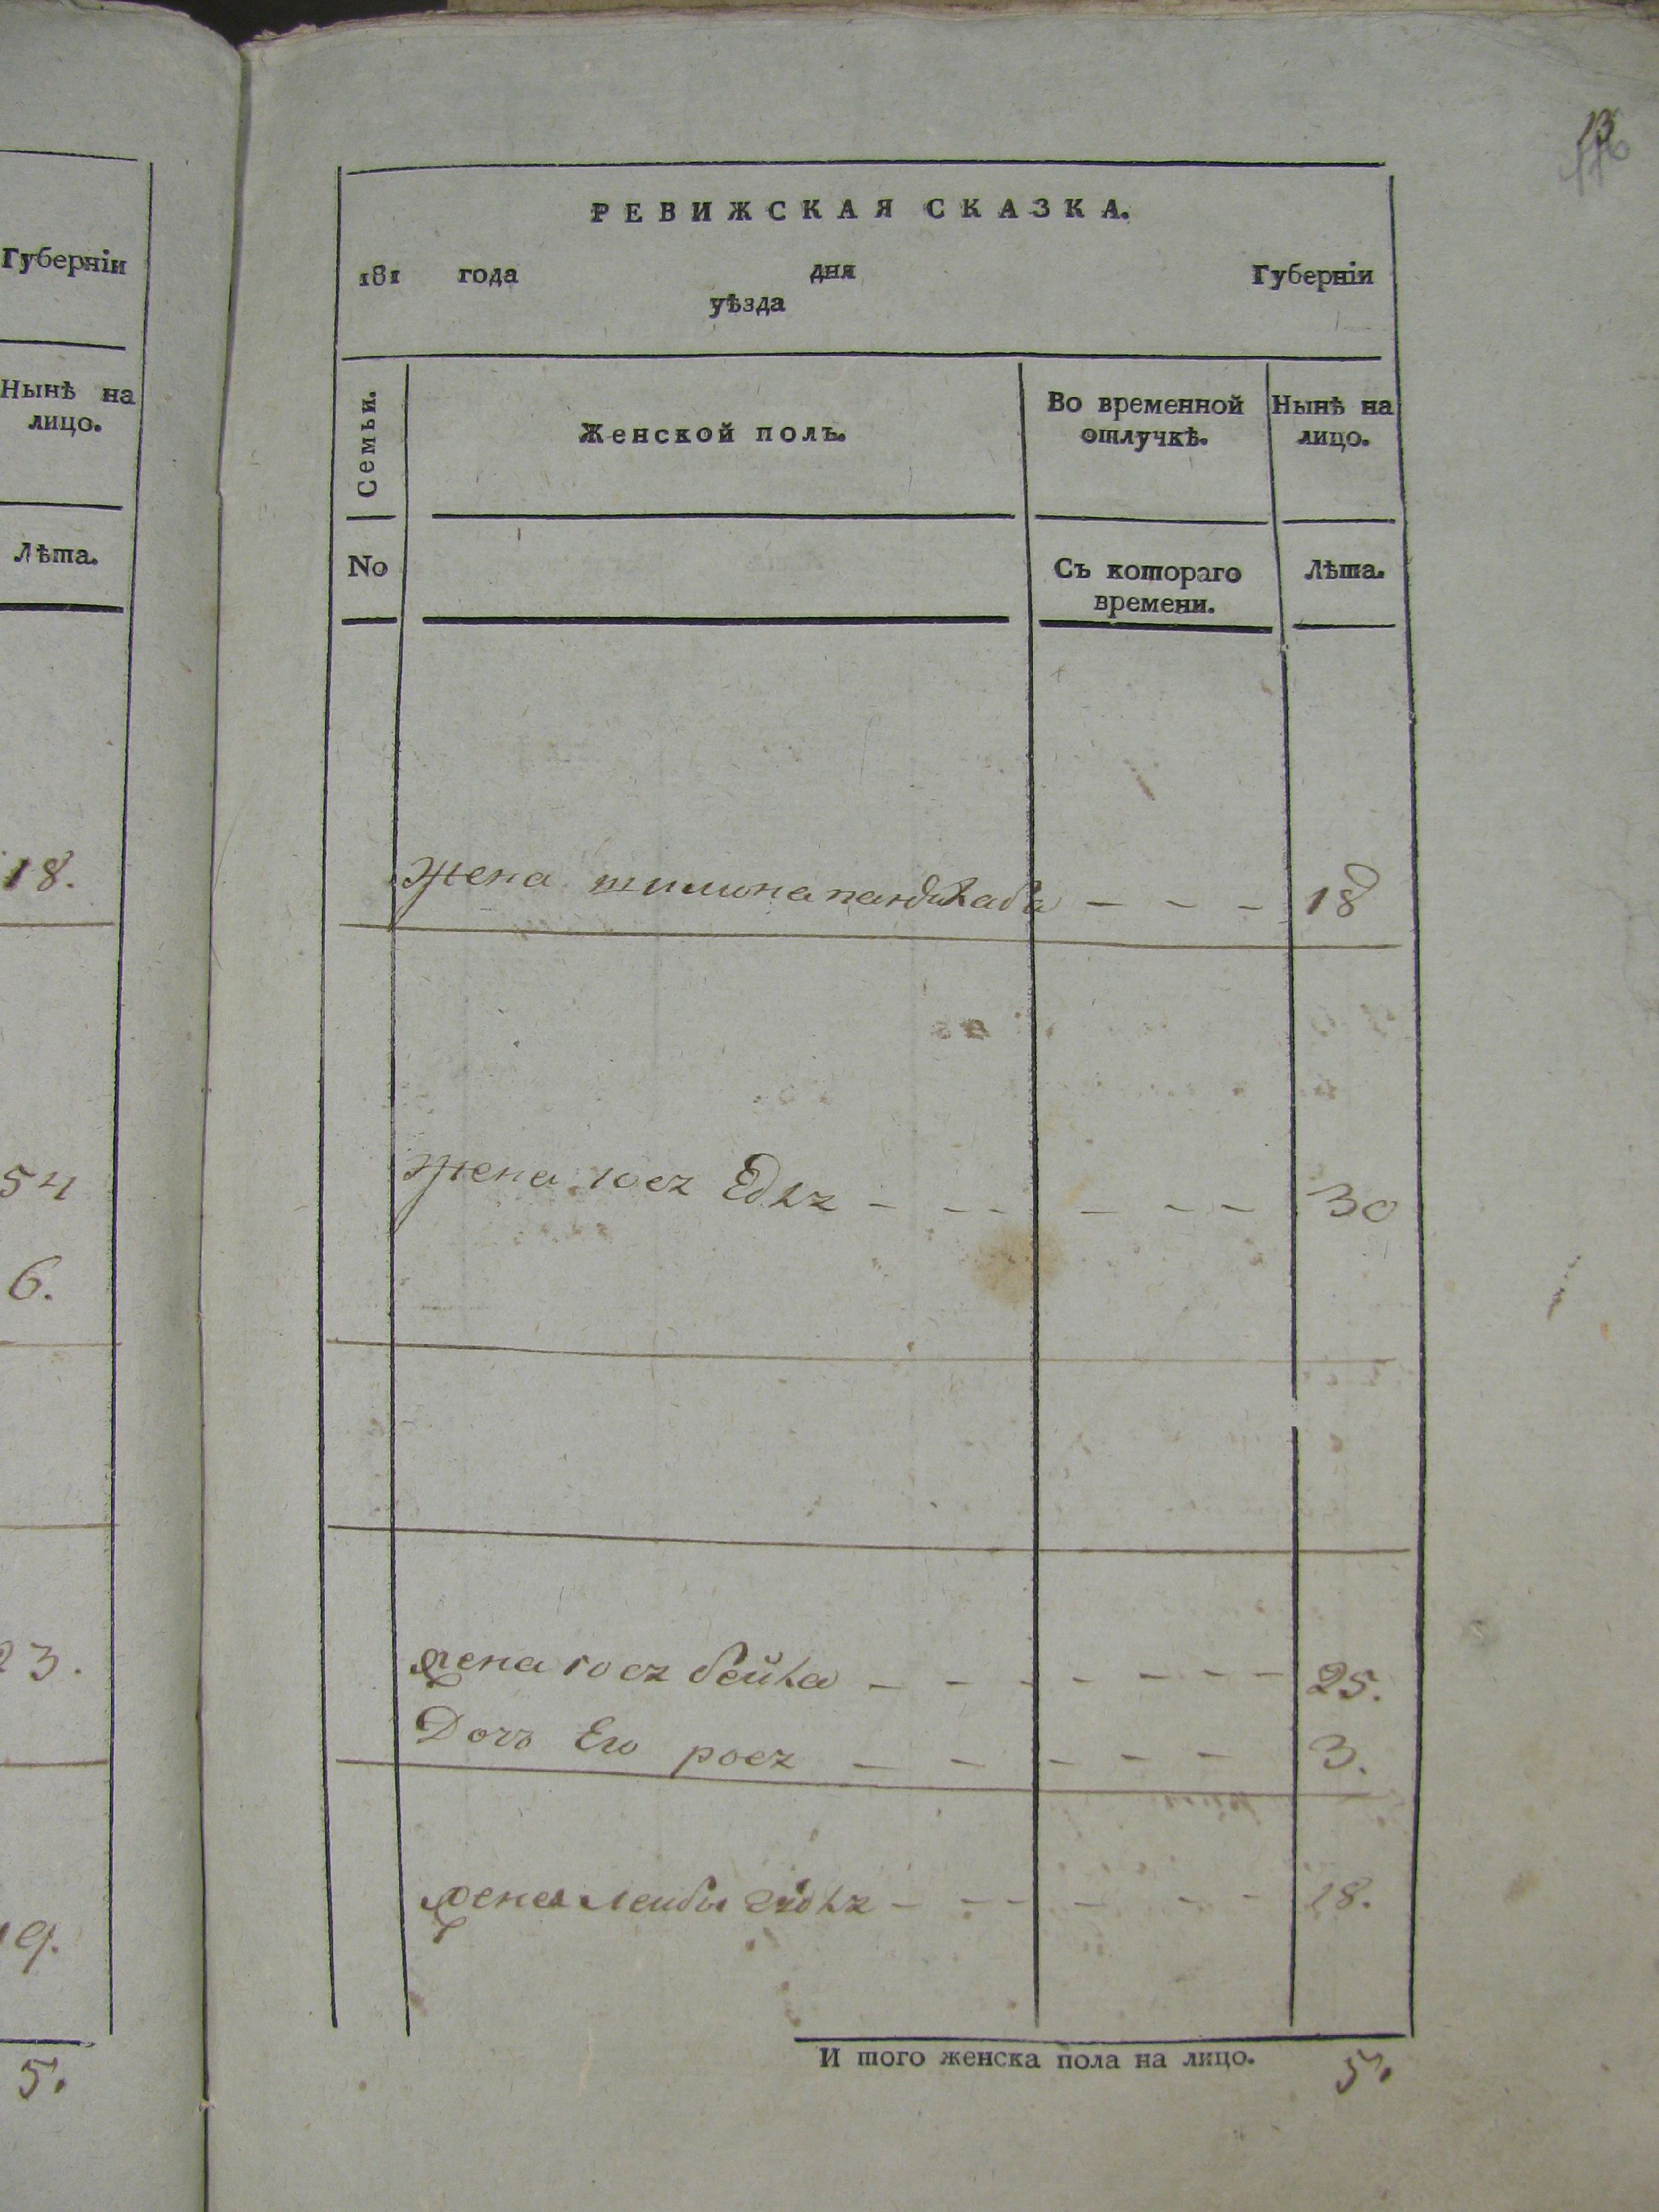 13
Губерніи
Нынѣ на
лицо.
Лѣта.
18.
54
6.
23.
19.
5.
РЕВИЖСКАЯ СКАЗКА.
181 года дня Губерніи
уѣзда
Семьи.
Женской полъ.
Во временной
отлучкѣ.
Нынѣ на
лицо.
No
Съ котораго
времени.
Лѣта.
жена шимона 18
жена юсz 30
жена юсz бейла 25.
Дочь Его роsz 3.
жена лейбы 18.
И того женска пола на лицо. 5.